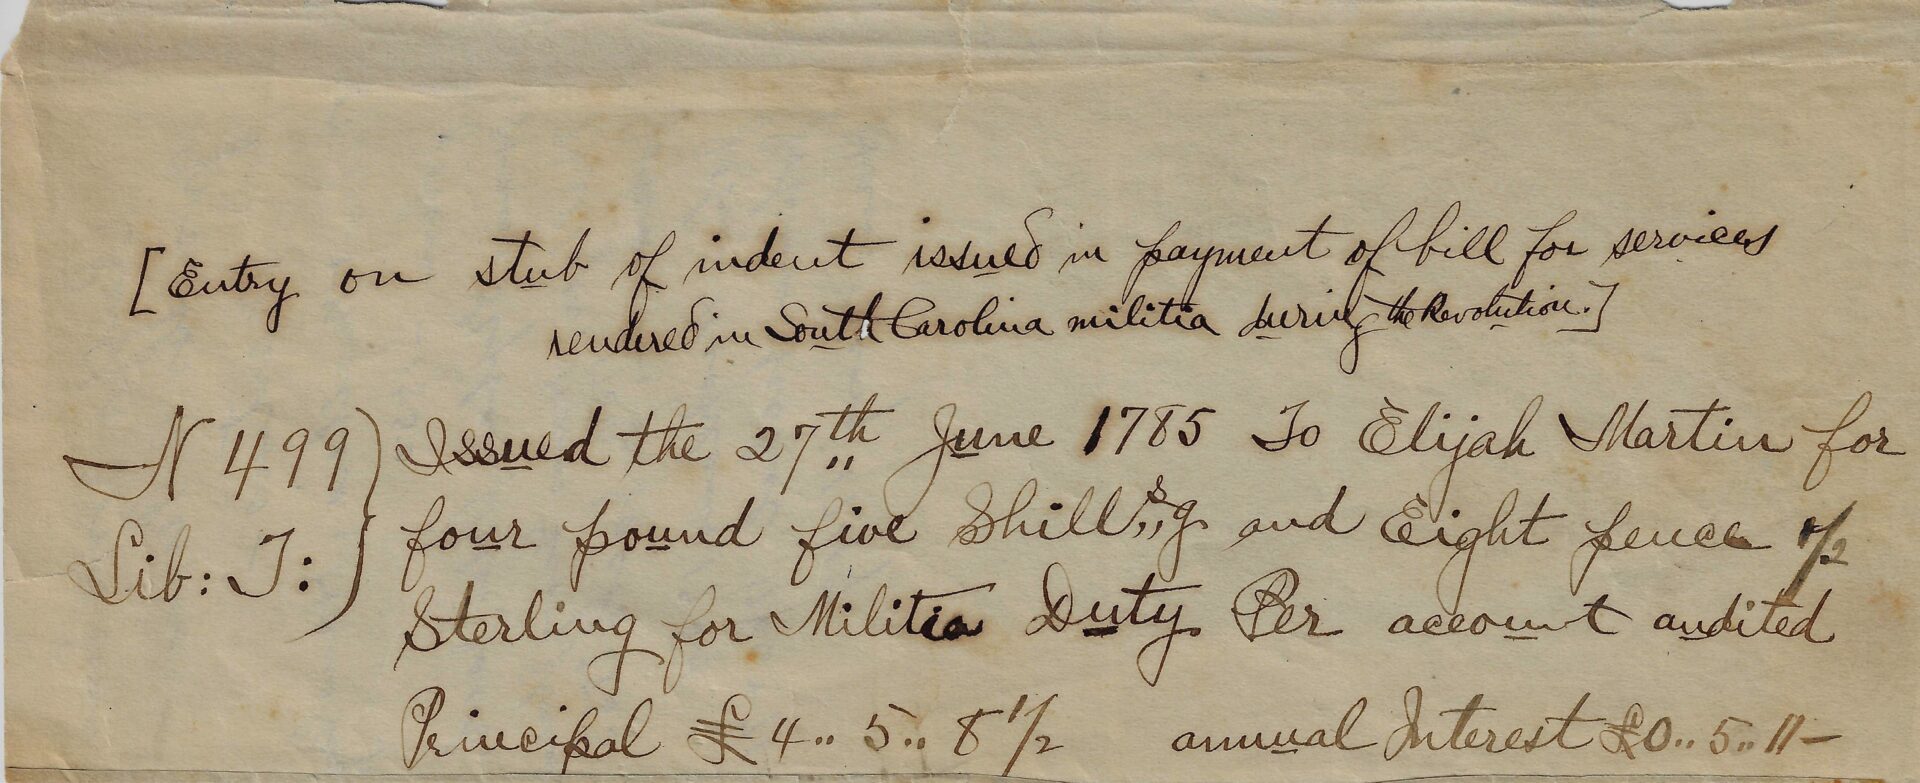 [Entry on stub of indent issued in payment of bill for services
rendered in South Carolina militia during the Revolution.]
N 499 } Issued the 27th June 1785 To Elijah Martin for
Lib: T: } four pound five Shillsg and Eight pence 1/2
Sterling for Militia Duty Per account audited
Principal £4.. 5.. 8 1/2 annual Interest £0.. 5.. 11 -